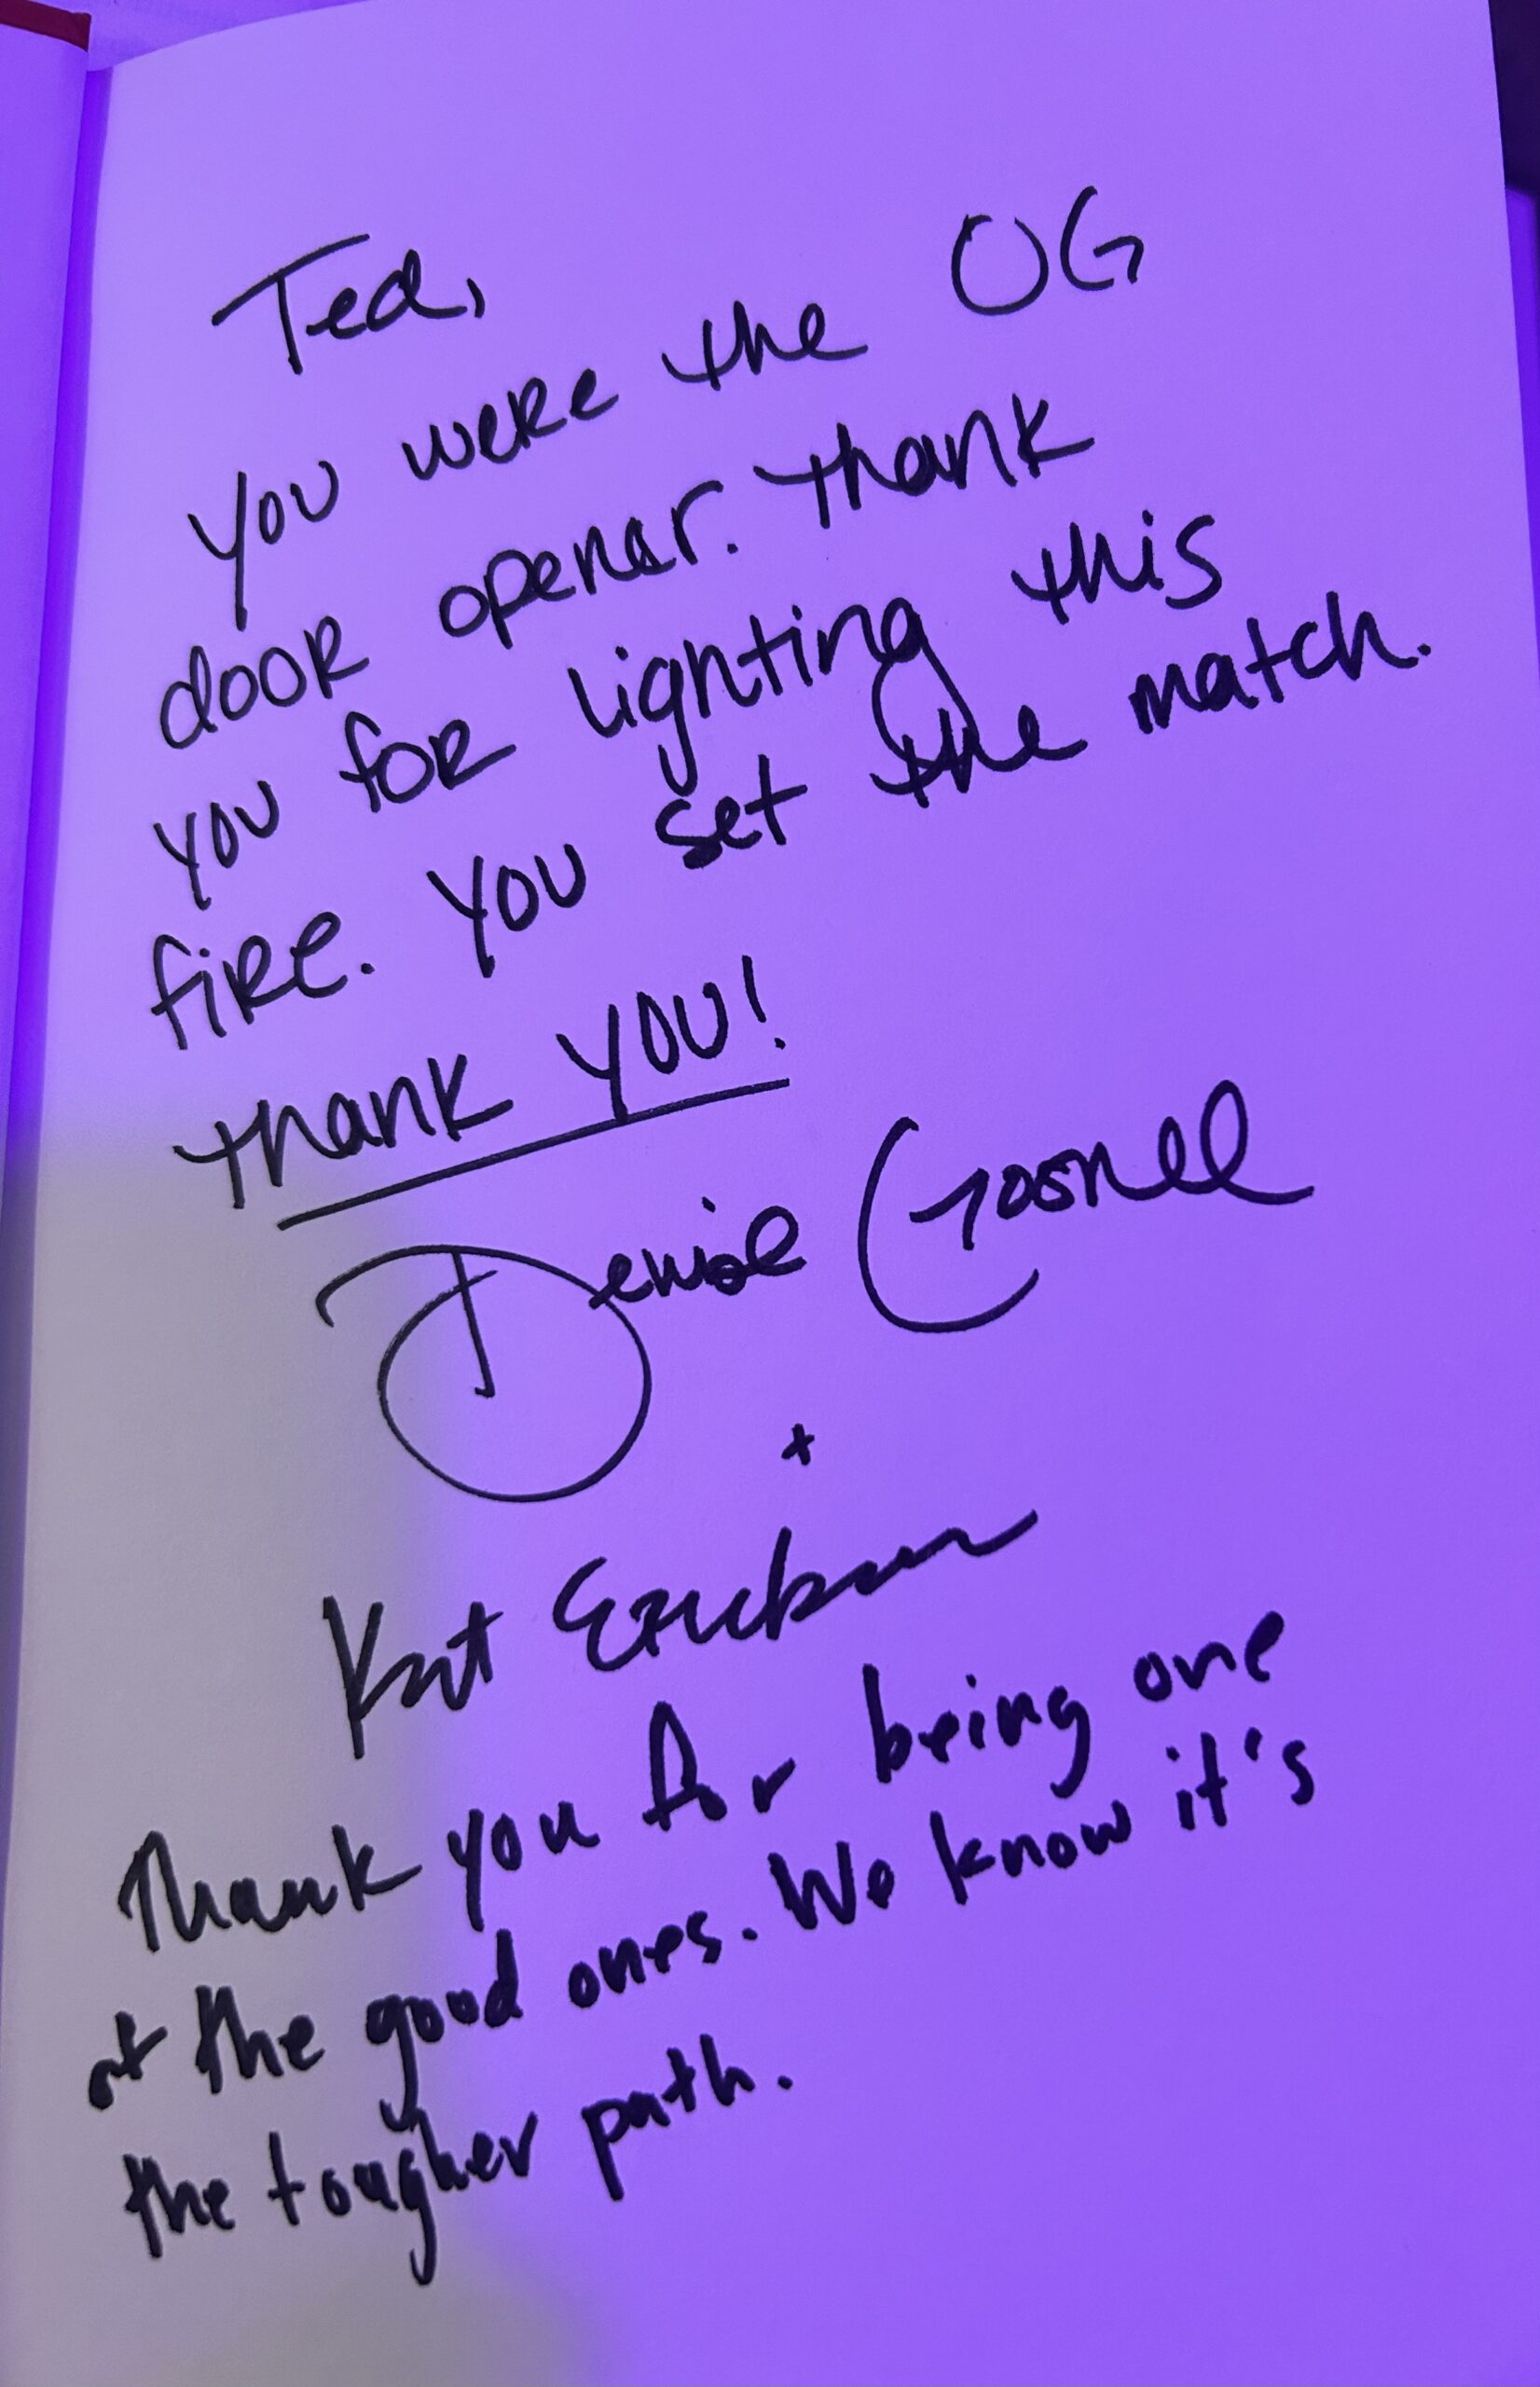 Ted,
you were the OG
door opener. Thank
you for lighting this
fire. You set the match.
Thank you!
Denise Gosnell
+
Kat Erickson
Thank you for being one
of the good ones. We know it's
the tougher path.